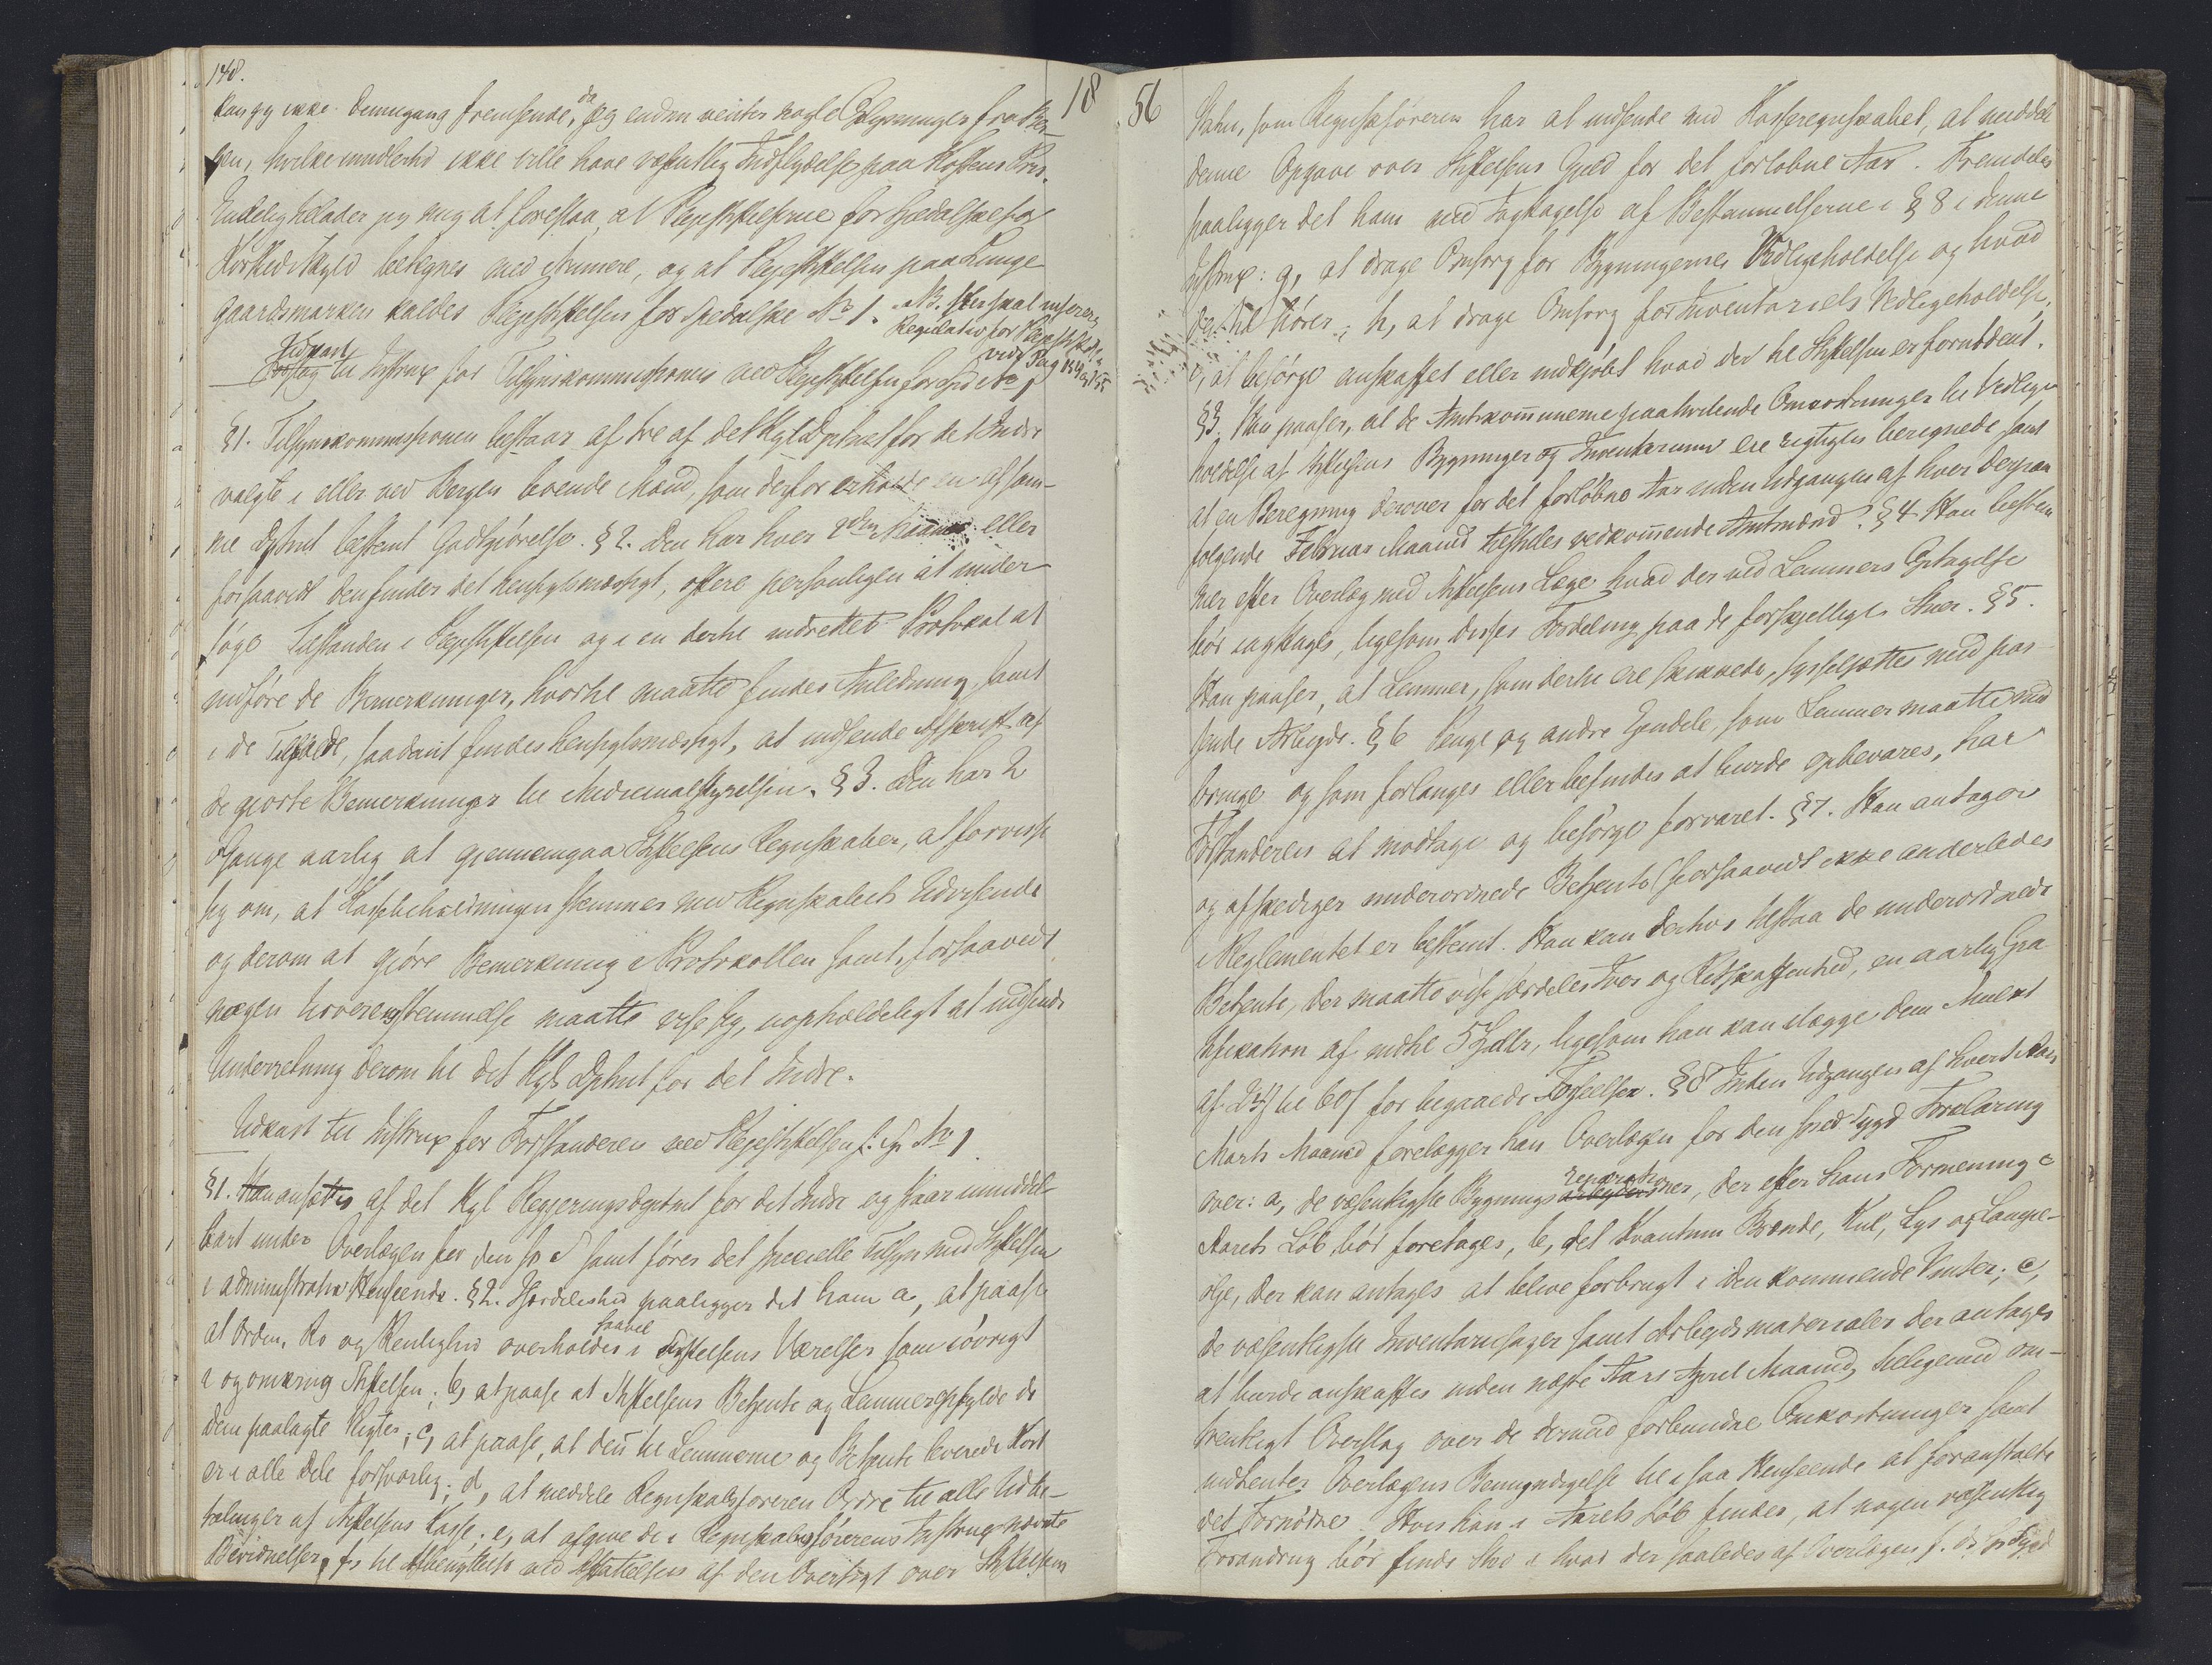 148.
18
kan jeg ikke dennegang fremsende, da jeg endnu venter nogle Oplysninger fra Ber-
gen, hvilke imidlertid ikke ville have væsentlig Indflydelse paa Kostens Pris.
Endelig tillader jeg mig at foreslaa at Plejestiftelserne for Spedalske
betegnes med Numere, og at Plejestiftelsen paa Lunge-
gaardsmarken kaldes Plejestiftelsen for Spedalske No 1. NB. Her skal inføres
Regulativ for Plejestift.
vide Pag 154 og 155
Udkast
Forslag til Instrux for Tilsynskommissionen ved Plejestiftelsen for Sp No 1
§1. Tilsynskommissionen bestaar af tre af det Kgl Dptmt for det Indre
valgte i eller ved Bergen boende Mænd, som derfor erholde en af sam-
me Dptmt bestemt Godtgjørelse. §2. Den har hver 2den Maaned eller
forsaavidt den finder det hensigtsmæssigt, oftere personligen at under-
søge Tilstanden i Plejestiftelsen og i en dertil indrettet Protokol at
indføre de Bemerkninger, hvortil maatte findes Anledning, samt
i de Tilfælde, saadant findes hensigtsmæssigt, at indsende Afskrift af
de gjorte Bemerkninger til Medicinalstyrelsen. §3. Den har 2
Gange aarlig at gjennemgaa Stiftelsens Regnskaber, at forvisse
sig om, at Kassebeholdningen stemmer med Regnskabets Udvisende
og derom at gjøre Bemerkning i Protokollen samt, forsaavidt
nogen Uoverensstemmelse maatte vise sig, uopholdeligt at indsende
Underretning derom til det Kgl Dptmt for det Indre.
Udkast til Instrux for Forstanderen ved Plejestiftelsen f. Sp No 1
§1. Han ansættes af det Kgl Regjeringsdeptmt for det Indre og staar umiddel-
bart under Overlægen for den sp S samt fører det specielle Tilsyn med Stiftelsen
i administrativ Henseende. §2. Isærdeleshed paaligger det ham a, at paase
at Orden, Ro og Renlighed overholdes saavel i Stiftelsens Værelser som iøvrigt
i og omkring Stiftelsen; b, at paase at Stiftelsens Betjente og Lemmer opfylde de
dem paalagte Pligter; c, at paase, at den til Lemmerne og Betjente leverede Kost
er i alle Dele forsvarlig; d, at meddele Regnskabsføreren Ordre til alle Udbe-
talinger af Stiftelsens Kasse; e, at afgive de i Regnskabsførerens Instrux nævnte
Bevidnelser, f, til Afbenyttelse ved Affattelsen af den Oversigt over Stiftelsens
56
Status, som Regnskabsføreren har at indsende med Kasseregnskabet, at meddele
denne Opgave over Stiftelsens Gjeld for det forløbne Aar. Fremdeles
paaligger det ham med Iagttagelse af Bestemmelserne i § 8 i denne
Instrux: g, at drage Omsorg for Bygningernes Vedligeholdelse og hvad
dertil hører; h, at drage Omsorg for Inventariets Vedligeholdelse,
i, at besørge anskaffet eller indkjøbt hvad der til Stiftelsen er fornødent.
§3. Han paaser, at de Amtskommunerne paahvilende Omkostninger til Vedlige-
holdelse af Stiftelsens Bygninger og Inventarium ere rigtigen beregnede samt
at en Beregning derover for det forløbne Aar inden Udgangen af hver derpaa
følgende Februar Maaned tilstilles vedkommende Amtmænd. §4 Han bestem-
mer efter Overlæg med Stiftelsens Læge hvad der ved Lemmers Optagelse
bør iagttages, ligesom disses Fordeling paa de forskjellige Stuer. §5.
Han paaser, at Lemmer, som dertil ere skikkede, sysselsættes med pas-
sende Arbejde. §6 Penge og andre Ejendele, som Lemmer maatte med-
bringe og som forlanges eller befindes at burde opbevares, har
Forstanderen at modtage og besørge forvaret. §7. Han antager
og afskediger underordnede Betjente forsaavidt ikke anderledes
i Reglementet er bestemt. Han kan derhos tilstaa de underordnede
Betjente, der maatte vise særdeles Troe og Retskaffenhed, en aarlig Gra-
tifikation af indtil 5 Spdlr, ligesom han kan ilægge dem Mulkt
af 24ß til 60ß for begaaede Forseelser. §8 Inden Udgangen af hvert Aars
Marts Maaned forelægger han Overlægen for den spedSygd Forklaring
over: a, de væsentligste Bygningsarbejder reparationer, der efter hans Formening i
Aarets Løb bør foretages, b, det Kvantum Brænde, Kul, Lys og Lampe-
olje, der kan antages at blive forbrugt i den kommende Vinter; c,
de væsentligste Inventariesager samt Arbejdsmaterialer der antages
at burde anskaffes inden næste Aars April Maaned, tilligemed om-
trentligt Overslag over de dermed forbundne Omkostninger samt
indhenter Overlægens Bemyndigelse til i saa Henseende at foranstalte
det Fornødne. Hvis han i Aarets Løb finder, at nogen væsentlig
Forandring bør finde Sted i hvad der saaledes af Overlægen f. d. spSygd